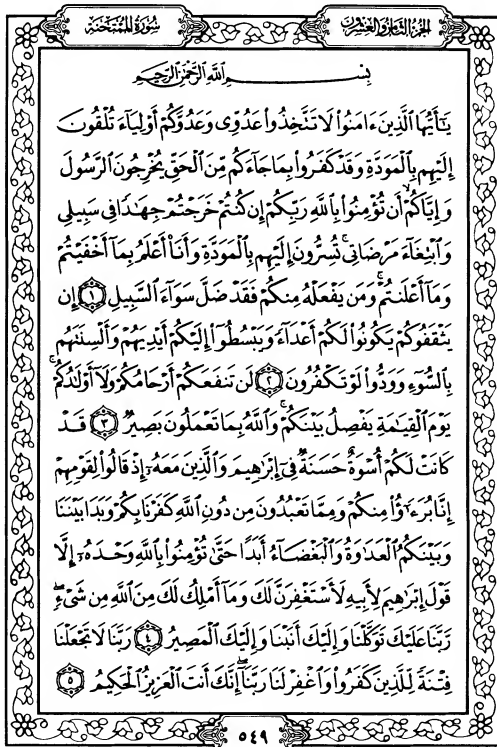 الجزء الثامن والعشرون
سورة الممتحنة
بِسْمِ اللَّهِ الرَّحْمَٰنِ الرَّحِيمِ
يَٰٓأَيُّهَا الَّذِينَ ءَامَنُوا۟ لَا تَتَّخِذُوا۟ عَدُوِّى وَعَدُوَّكُمْ أَوْلِيَآءَ تُلْقُونَ
إِلَيْهِم بِالْمَوَدَّةِ وَقَدْ كَفَرُوا۟ بِمَا جَآءَكُم مِّنَ الْحَقِّ يُخْرِجُونَ الرَّسُولَ
وَإِيَّاكُمْ ۙ أَن تُؤْمِنُوا۟ بِاللَّهِ رَبِّكُمْ إِن كُنتُمْ خَرَجْتُمْ جِهَٰدًا فِى سَبِيلِى
وَابْتِغَآءَ مَرْضَاتِى ۚ تُسِرُّونَ إِلَيْهِم بِالْمَوَدَّةِ وَأَنَا۠ أَعْلَمُ بِمَآ أَخْفَيْتُمْ
وَمَآ أَعْلَنتُمْ ۚ وَمَن يَفْعَلْهُ مِنكُمْ فَقَدْ ضَلَّ سَوَآءَ السَّبِيلِ ١ إِن
يَثْقَفُوكُمْ يَكُونُوا۟ لَكُمْ أَعْدَآءً وَيَبْسُطُوٓا۟ إِلَيْكُمْ أَيْدِيَهُمْ وَأَلْسِنَتَهُم
بِالسُّوٓءِ وَوَدُّوا۟ لَوْ تَكْفُرُونَ ٢ لَن تَنفَعَكُمْ أَرْحَامُكُمْ وَلَآ أَوْلَٰدُكُمْ ۚ
يَوْمَ الْقِيَٰمَةِ يَفْصِلُ بَيْنَكُمْ ۚ وَاللَّهُ بِمَا تَعْمَلُونَ بَصِيرٌ ٣ قَدْ
كَانَتْ لَكُمْ أُسْوَةٌ حَسَنَةٌ فِىٓ إِبْرَٰهِيمَ وَالَّذِينَ مَعَهُۥٓ إِذْ قَالُوا۟ لِقَوْمِهِمْ
إِنَّا بُرَءَٰٓؤُا۟ مِنكُمْ وَمِمَّا تَعْبُدُونَ مِن دُونِ اللَّهِ كَفَرْنَا بِكُمْ وَبَدَا بَيْنَنَا
وَبَيْنَكُمُ الْعَدَٰوَةُ وَالْبَغْضَآءُ أَبَدًا حَتَّىٰ تُؤْمِنُوا۟ بِاللَّهِ وَحْدَهُۥٓ إِلَّا
قَوْلَ إِبْرَٰهِيمَ لِأَبِيهِ لَأَسْتَغْفِرَنَّ لَكَ وَمَآ أَمْلِكُ لَكَ مِنَ اللَّهِ مِن شَىْءٍ ۖ
رَّبَّنَا عَلَيْكَ تَوَكَّلْنَا وَإِلَيْكَ أَنَبْنَا وَإِلَيْكَ الْمَصِيرُ ٤ رَبَّنَا لَا تَجْعَلْنَا
فِتْنَةً لِّلَّذِينَ كَفَرُوا۟ وَاغْفِرْ لَنَا رَبَّنَآ ۖ إِنَّكَ أَنتَ الْعَزِيزُ الْحَكِيمُ ٥
٥٤٩